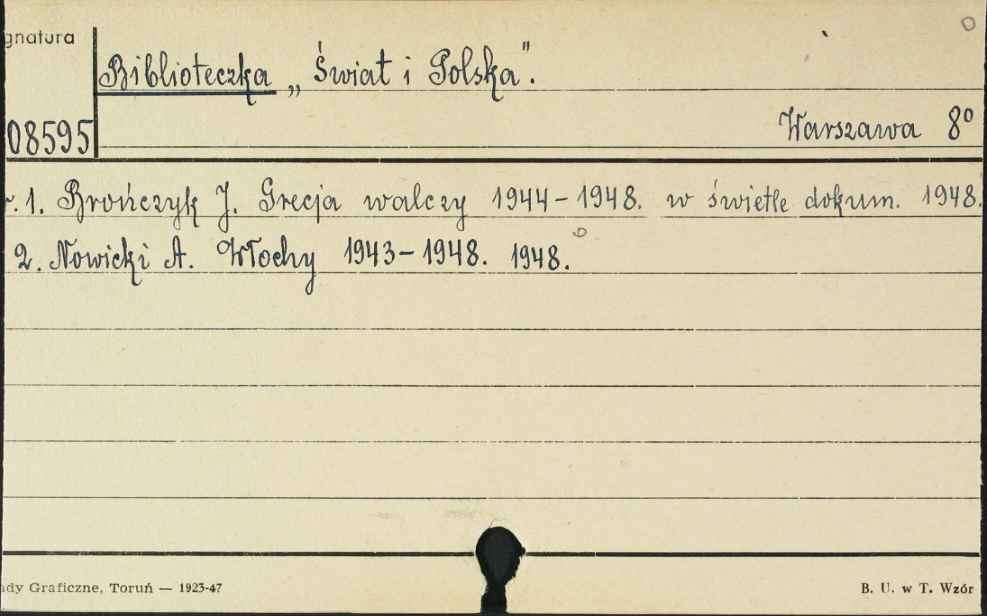 gnatura
Biblioteczka „Świat i Polska".
08595
Warszawa 8º
r. 1. Brończyk J. Grecja walczy 1944-1948. w świetle dokum. 1948.
2. Nowicki A. Włochy 1943-1948. 1948.
ady Graficzne, Toruń — 1923-47
B. U. w T. Wzór